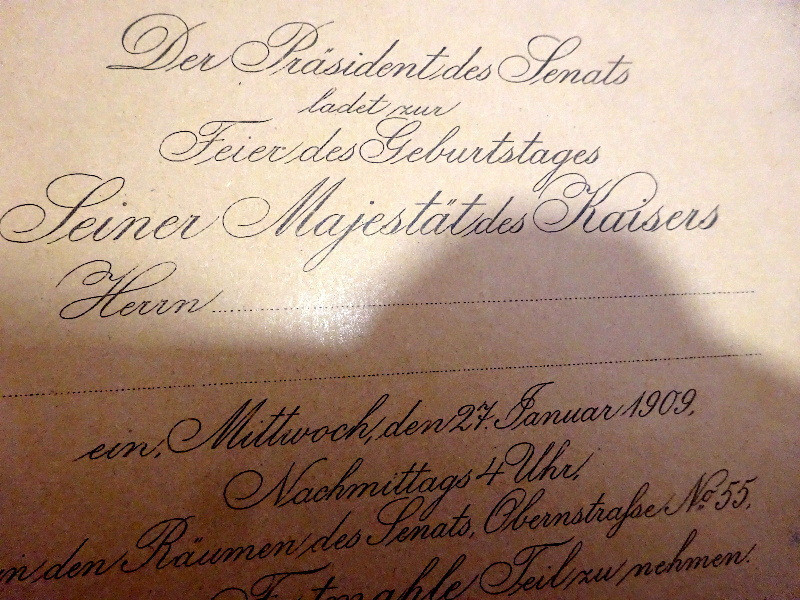 Der Präsident des Senats
ladet zur
Feier des Geburtstages
Seiner Majestät des Kaisers
Herrn
ein, Mittwoch, den 27. Januar 1909,
Nachmittags 4 Uhr,
in den Räumen des Senats, Obernstraße No 55,
Festmahle Teil zu nehmen.